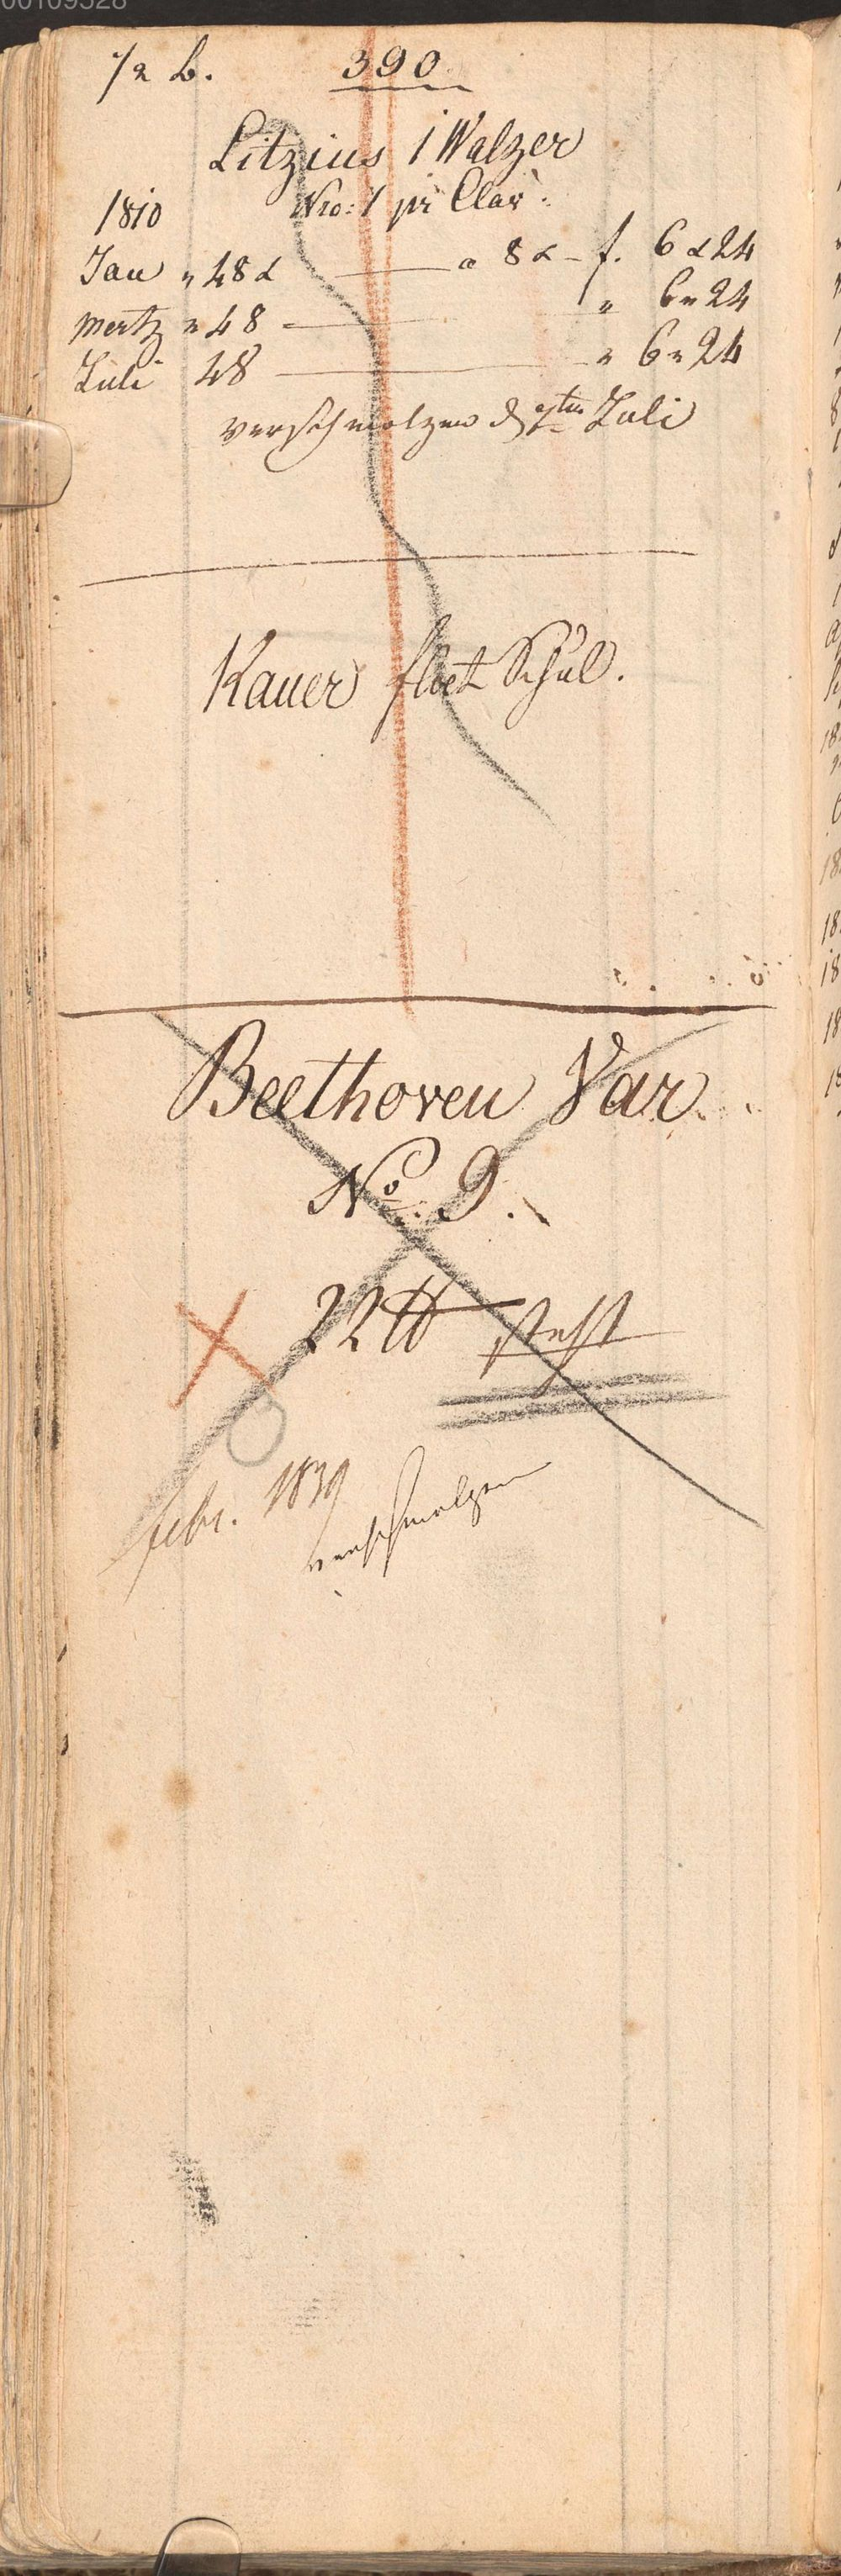 00109528
1/2 b. 390
Litzius 1 Walzer
1810 Nro: 1 pr Clav:
Jan " 48 x — a 8 x – f. 6 x 24
Mertz " 48 — " 6 " 24
Juli 48 — " 6 " 24
verschmolzen d Juli
Kauer floet Schul.
Beethoven Var.
No. 9.
22 ℔ steht
febr. 1839
verschmolzen